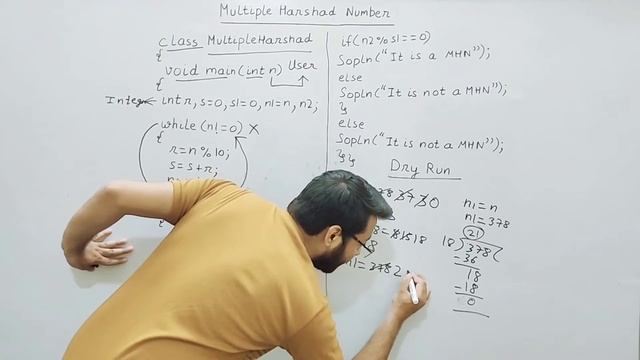 Multiple Harshad Number
class MultipleHarshad
{
void main(int n) User
{
Integer int r, s=0, s1=0, n1=n, n2;
while (n!=0) X
{
r=n%10;
s=s+r;
if(n2%s1==0)
Sopln("It is a MHN");
else
Sopln("It is not a MHN");
}
else
Sopln("It is not a MHN");
}}
Dry Run
37 3 0
18
n1=378 2
n1=n
n1=378
21
18)378(
-36
18
-18
0